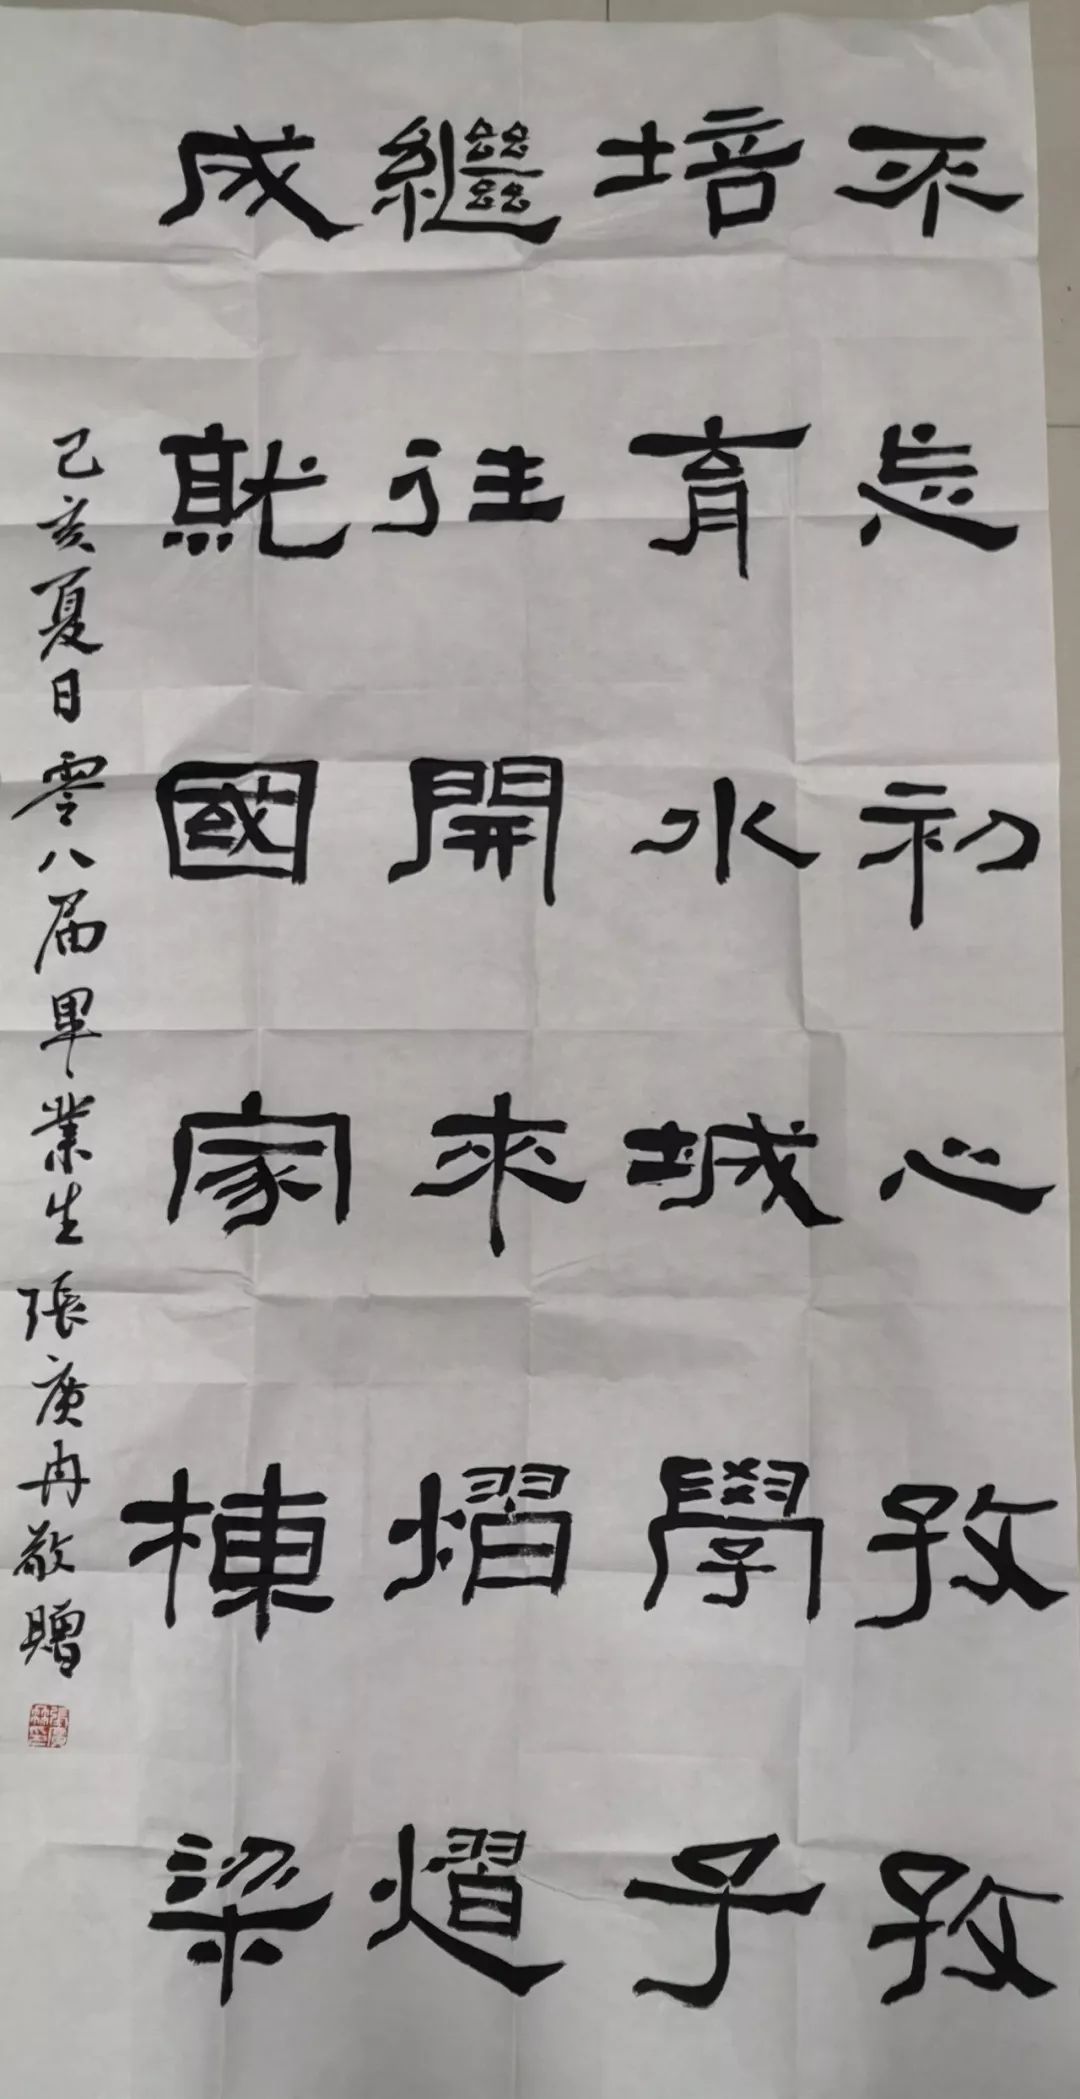 不忘初心孜孜
培育水城學子
繼往開來熠熠
成就國家棟梁
己亥夏日零八届畢業生張廣冉敬贈